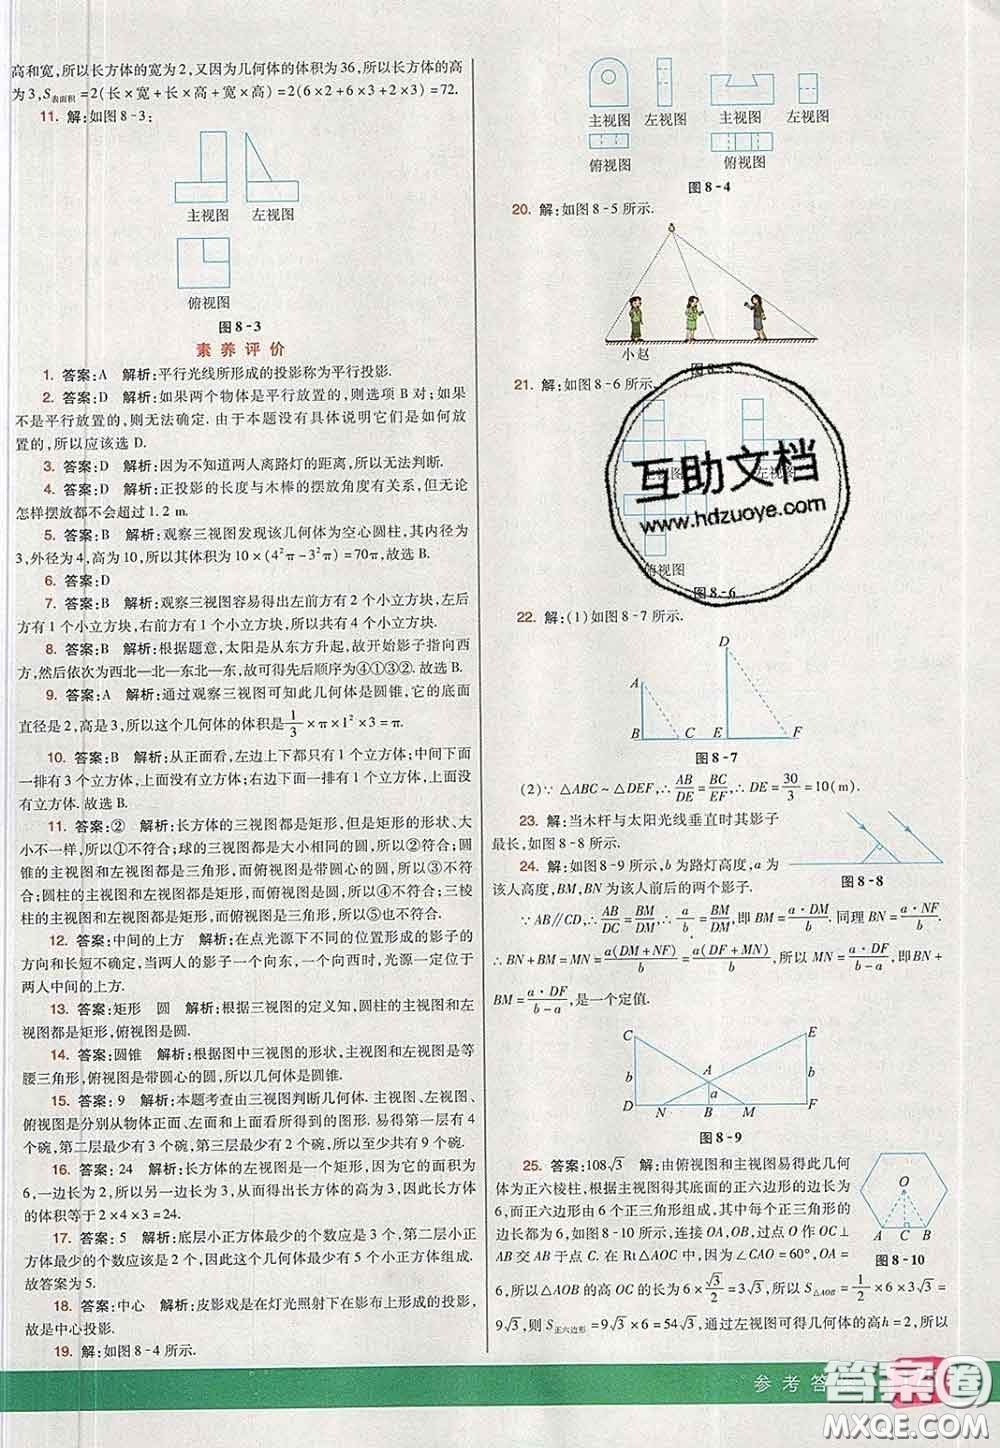 高和宽,所以长方体的宽为2,又因为几何体的体积为36,所以长方体的高
为3,S表面积=2(长×宽+长×高+宽×高)=2(6×2+6×3+2×3)=72.
11. 解:如图8-3:
主视图 左视图
俯视图
图8-3
素养评价
1. 答案:A 解析:平行光线所形成的投影称为平行投影.
2. 答案:D 解析:如果两个物体是平行放置的,则选项B对;如果
不是平行放置的,则无法确定.由于本题没有具体说明它们是如何放
置的,所以应该选D.
3. 答案:D 解析:因为不知道两人离路灯的距离,所以无法判断.
4. 答案:D 解析:正投影的长度与木棒的摆放角度有关系,但无论
怎样摆放都不会超过1.2 m.
5. 答案:B 解析:观察三视图发现该几何体为空心圆柱,其内径为
3,外径为4,高为10,所以其体积为10×(4²π-3²π)=70π,故选B.
6. 答案:D
7. 答案:B 解析:观察三视图容易得出左前方有2个小立方块,左后
方有1个小立方块,右前方有1个小立方块,所以共有4个小立方块.
8. 答案:B 解析:根据题意,太阳是从东方升起,故影子指向西
方,然后依次为西北—北—东北—东,故可得先后顺序为④①③②.故选B.
9. 答案:A 解析:通过观察三视图可知此几何体是圆锥,它的底面
直径是2,高是3,所以这个几何体的体积是1/3×π×1²×3=π.
10. 答案:B 解析:从正面看,左边上下都只有1个立方体;中间下面
一排有3个立方体,上面没有立方体;右边下面有1个立方体,上面没
有立方体.故选B.
11. 答案:② 解析:长方体的三视图都是矩形,但是矩形的形状、大
小不一样,所以①不符合;球的三视图是大小相同的圆,所以②符合;圆
锥的主视图和左视图都是三角形,而俯视图是圆形,所以③不符合;
圆柱的主视图和左视图都是矩形,而俯视图是圆形,所以④不符合;三棱
柱的主视图和左视图是矩形,而俯视图是三角形,所以⑤也不符合.
12. 答案:中间的上方 解析:在点光源下不同的位置形成的影子的
方向和长短不确定,当两人的影子一个向东,一个向西时,光源一定位于
两人中间的上方.
13. 答案:矩形 圆 解析:根据三视图的定义知,圆柱的主视图和左
视图都是矩形,俯视图是圆.
14. 答案:圆锥 解析:根据图中三视图的形状,主视图和左视图是等
腰三角形,俯视图是带圆心的圆,所以几何体是圆锥.
15. 答案:9 解析:本题考查由三视图判断几何体.主视图、左视图、
俯视图是分别从物体正面、左面和上面看所得到的图形.易得第一层有4
个碗,第二层最少有3个碗,第三层最少有2个碗,所以共有9个碗.
16. 答案:24 解析:长方体的左视图是一个矩形,因为它的面积为
6,一边长为2,所以另一边长为3,因为主视图的一边长为4,所以长方体
的体积等于2×4×3=24.
17. 答案:5 解析:底层小正方体最少的个数应是3个,第二层小正
方体最少的个数应该是2个,因此这个几何体最少有5个小正方体组成.
故答案为5.
18. 答案:中心 解析:皮影戏是在灯光照射下在影布上形成的投影,
故是中心投影.
19. 解:如图8-4所示.
主视图 左视图 主视图 左视图
俯视图 俯视图
图8-4
20. 解:如图8-5所示.
小赵
图8-5
21. 解:如图8-6所示.
左视图
俯视图
图8-6
互助文档
www.hdzuoye.com
22. 解:(1)如图8-7所示.
D
A
B C E F
图8-7
(2)∵△ABC∽△DEF,∴AB/DE=BC/EF,∴DE=30/3=10(m).
23. 解:当木杆与太阳光线垂直时其影子
最长,如图8-8所示.
图8-8
24. 解:如图8-9所示,b为路灯高度,a为
该人高度,BM,BN为该人前后的两个影子.
∵AB//CD,∴AB/DC=BM/DM,∴a/b=BM/DM,即BM=a·DM/b.同理BN=a·NF/b.
∴BN+BM=MN=a(DM+NF)/b=a(DF+MN)/b,所以MN=a·DF/b-a,即BN+
BM=a·DF/b-a,是一个定值.
C E
b A b
a
D N B M F
图8-9
25. 答案:108√3 解:由俯视图和主视图易得此几何
体为正六棱柱,根据其底面的正六边形的边长为
6,而正六边形由6个正三角形组成,其中每个正三角形的
边长为6,如图8-10所示,连接OA,OB,过点O作OC⊥
AB交AB于点C.在Rt△AOC中,因为∠CAO=60°,OA=
O
A C B
图8-10
6,所以△AOB的高OC的长为6×√3/2=3√3,所以S△AOB=1/2×6×3√3=
9√3,则S正六边形=9√3×6=54√3,通过左视图可得几何体的高h=2,所以
参考答
答案圈
MXQE.COM